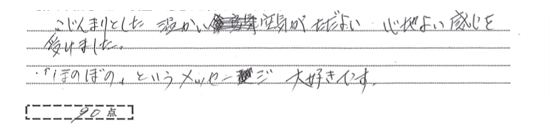 こじんまりとした 温かい 空気が ただよい 心地よい 感じを
受けました。
・「ほのぼの」というメッセージ 大好きです。
90点